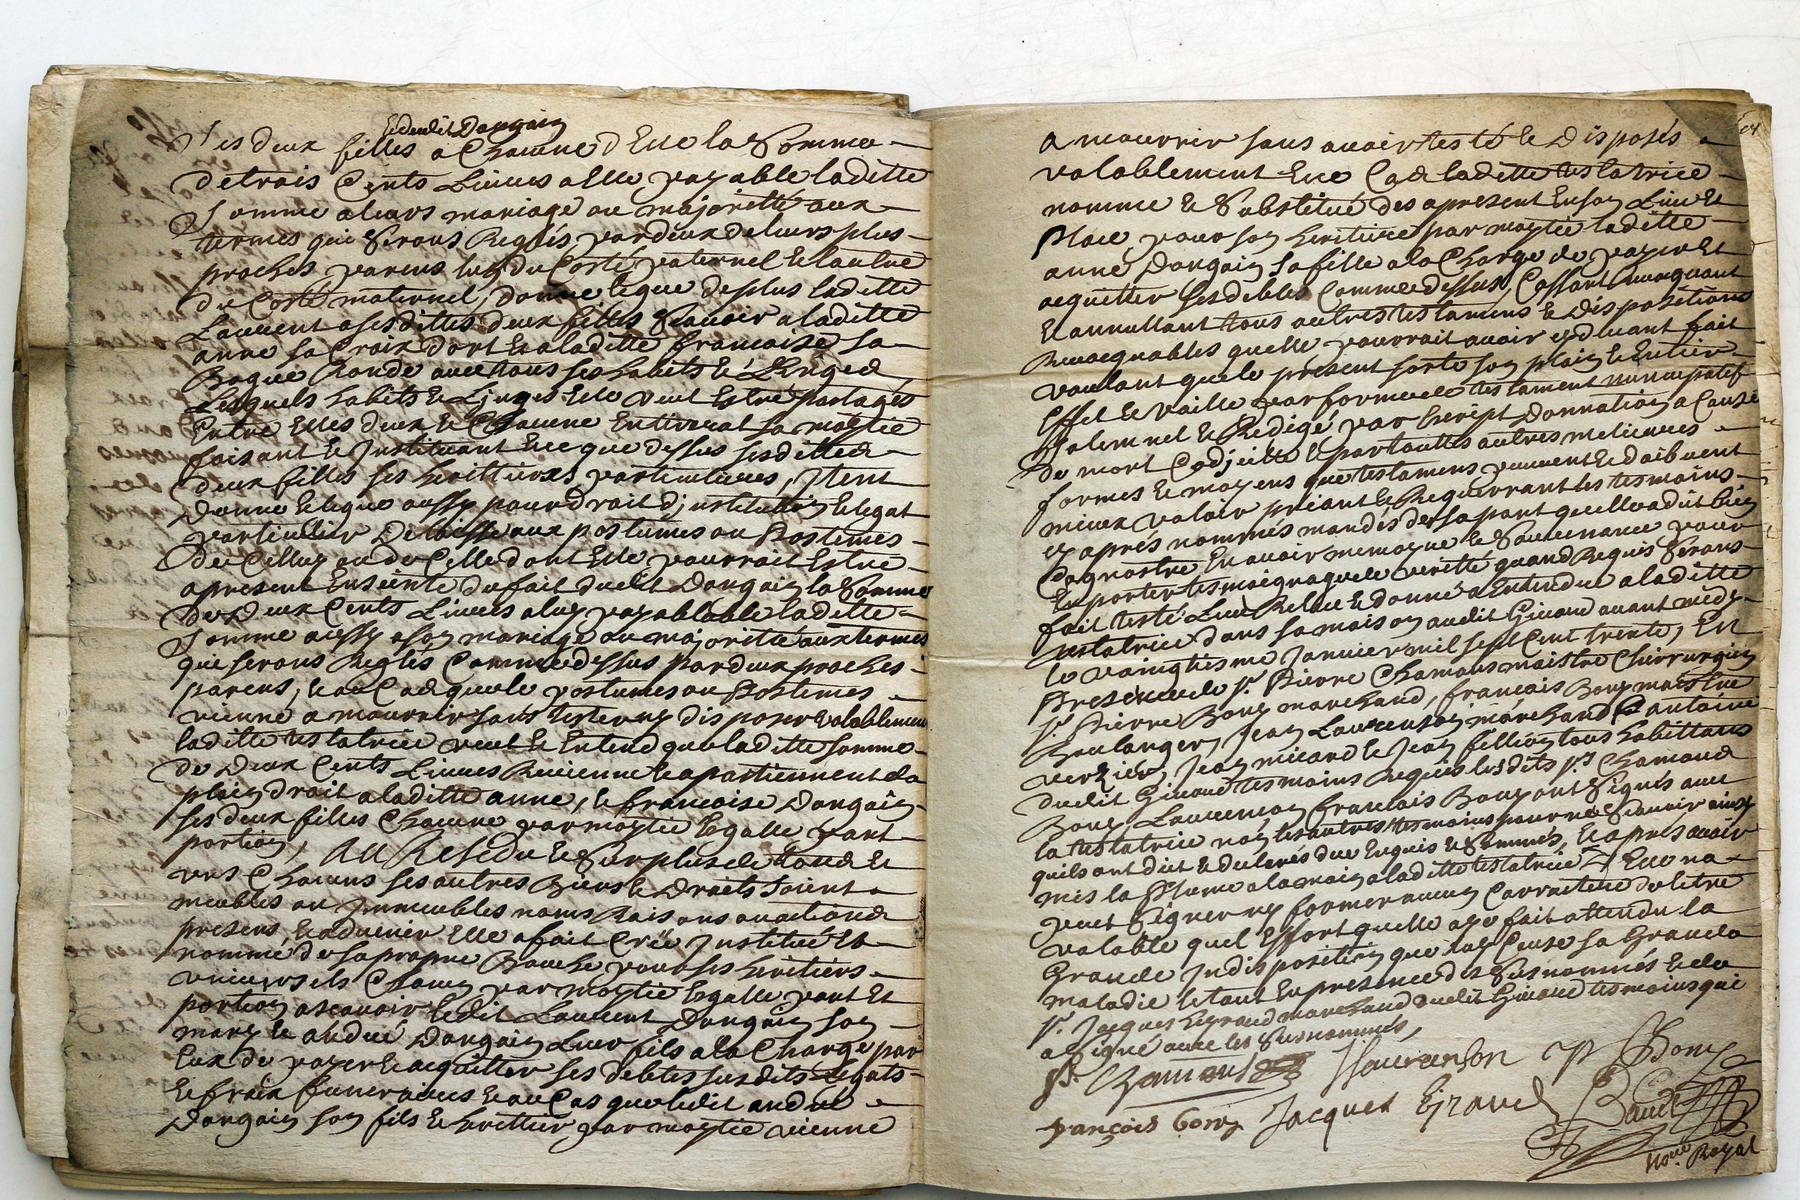 et dudit Dangain
ses deux filles a Chacune d'Elle la Somme
de trois Cents Livres a Elle payable laditte
Somme a leurs mariage ou majoritté aux
termes qui Serons Reglés par deux de leurs plus
proches parens luy du Costé paternel et lautre
du Costé maternel, donne legue de plus laditte
Laurent a sesdittes deux filles Scavoir a laditte
anne sa Croix dort et a laditte francoise sa
Bague Ronde avec tous ses habits et Linges
Lesquels habits et Linges Elle veut Estre partagés
Entre Elles deux et Chacune En tirerat sa moytie
faisant et Instituant En ce que dessus sesdittes
deux filles ses heritieres particulieres, Item
Donne et legue aussy pour droit d'institution et legat
particulier De laisse aux postumes ou Postumes
de Celluy ou de Celle dont Elle pourroit Estre
apresent Enseinte du fait dudit Dangain la Somme
de Deux Cents Livres a luy payablable laditte
Somme aussy a son mariage ou majoritté aux termes
que serons Reglés Comme dessus par deux proches
parens, et au Cas que le postumes ou Postumes
vienne a mourrir sans tester ny disposer valablement
laditte testatrice veut et Entend que laditte somme
de Deux Cents Livres Revienne et apartiennent de
plein droit a laditte anne, et francoise Dangain
ses deux filles Chacune par moytie Egalle part
portion, Au Residu et Surplus de tous et
uns Chacuns ses autres Biens et Droits soient
meubles ou Immeubles noms Raisons ou actions
presens et advenir Elle a fait Créé Institué et
nommé de sa propre Bouche pour ses heritiers
universels Chacun par moytie Egalle part et
portion ascavoir ledit Laurent Dangain son
mary et andré Dangain Leur fils a la Charge par
Eux de payer et acquitter ses debtes susdits legats
et fraix funeraires et au Cas que ledit andré
Dangain son fils et heritier par moytie vienne
a mourrir sans avoir testé et Disposés
valablement En ce Cas laditte testatrice
nomme et Substitué des apresent En son Lieu et
Place pour son heritiere par moytie laditte
anne Dangain sa fille a la Charge de payer et
acquitter ses debtes Comme dessus, Cassant Revoquant
et annullant tous autres testamens et dispositions
Revocquables quelle pourroit avoir cy devant fait
voulant que le present sorte son plein et Entier
Effet et vaille par forme de testament nuncupatif
solemnel et Redigé par Escript Donnation a Cause
de mort Codicille et par touttes autres melieures
formes et moyens que testamens peuvent et doibvent
mieux valoir priant et Requerrant les tesmoins
cy aprés nommés mandés de sa part quelle a dit bien
Cognoistre En avoir memoyre et Souvenance pour
En porter tesmoignage de verité quand Requis Serons
fait testé Leu Relue et donné a Entendre a laditte
testatrice dans sa maison audit Givord avant midy
le vaingtiesme Janvier mil sept Cent trente, En
Presence de Sr. Pierre Chamous maistre Chirurgien
Sr. Pierre Bony marchand, francois Bony maistre
Boulanger, Jean Laurenson marchand antoine
verzier, Jean micard et Jean fillion tous habittans
dudit Givord tesmoins Requis lesdits Srs. Chamoud
Bony Laurenson francois Bony ont Signés avec
la testatrice non les autres tesmoins pour ne Scavoir ainsy
quils ont dit et declarés due Enquis et Sommés, et aprés avoir
mis la Plume a la main a laditte testatrice Elle na
peut Signer ny former aucun Carractere de letre
valable quel Effort quelle aye fait attendu la
Grande Indisposition que luy Cause sa Grande
maladie et tant En presence des Susnommés et de
Sr. Jacques Egraud marchand audit Givord tesmoins qui
a Signé avec les Susnommés,
Laurenson P Bony
françois bony Jacques Egraud
Nore Royal